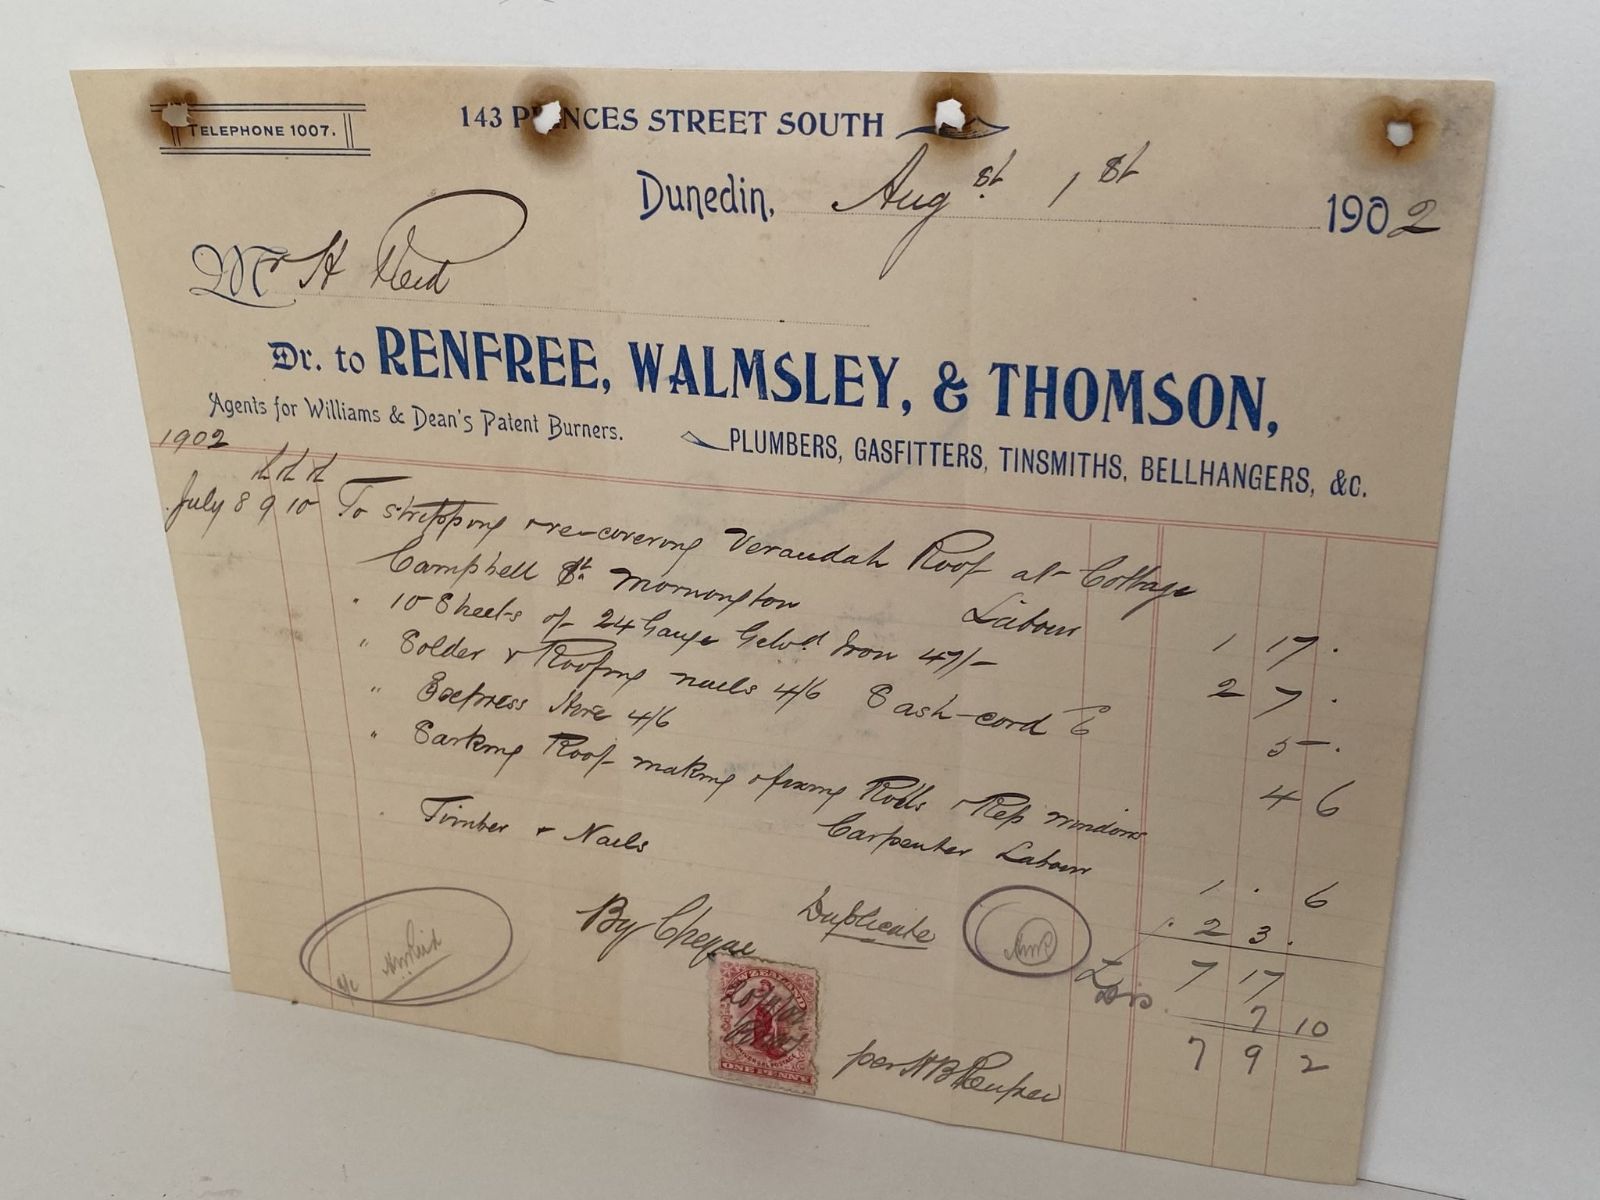 TELEPHONE 1007.
143 PRINCES STREET SOUTH
Dunedin, Augst 1st 1902
Mr H Reid
Dr. to RENFREE, WALMSLEY, & THOMSON,
Agents for Williams & Dean's Patent Burners.
PLUMBERS, GASFITTERS, TINSMITHS, BELLHANGERS, &c.
1902
July 8th 9th 10th To stripping & re-covering Verandah Roof at Cottage
Campbell St. Mornington Labour 1 17 .
" 10 Sheets of 24 Gauge Galvd Iron 47/- 2 7 .
" Solder & Roofing nails 4/6 Sash-cord 6 5 - .
" Express Hire 4/6 4 6
" Sarking Roof making & fixing Rolls & Rep windows
Carpenter Labour 1 . 6
" Timber & Nails . 2 3 .
£ 7 17
Dis 7 10
7 9 2
By Cheque Duplicate
NEW ZEALAND
UNIVERSAL POSTAGE
ONE PENNY
per H B Renfree